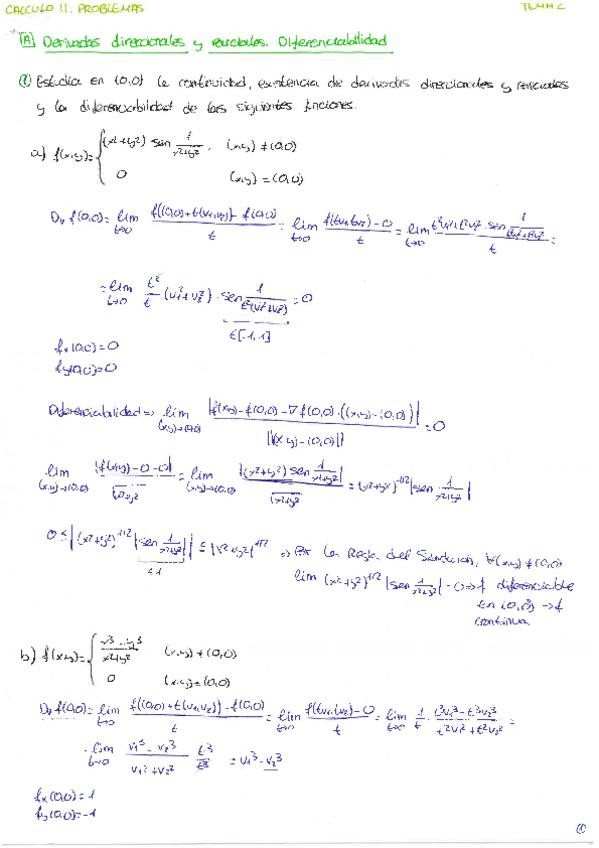 CALCULO II. PROBLEMAS
TEMA 2
[A] Derivadas direccionales y parciales. Diferenciabilidad
① Estudia en (0,0) la continuidad, existencia de derivadas direccionales y parciales
y la diferenciabilidad de las siguientes funciones.
a) f(x,y)= { (x²+y²) sen 1/(x²+y²), (x,y) ≠ (0,0)
0 (x,y) = (0,0)
Dv f(0,0) = lim t→0 (f((0,0)+t(v₁,v₂)) - f(0,0))/t = lim t→0 (f(tv₁,tv₂) - 0)/t = lim t→0 (t²v₁²+t²v₂² · sen 1/(t²v₁²+t²v₂²))/t =
= lim t→0 t²/t (v₁²+v₂²) · sen 1/(t²(v₁²+v₂²)) = 0
∈[-1,1]
fx(0,0)=0
fy(0,0)=0
Diferenciabilidad => lim (x,y)→(0,0) |f(x,y) - f(0,0) - ∇f(0,0)·((x,y)-(0,0))| / ||(x,y)-(0,0)|| = 0
lim (x,y)→(0,0) |f(x,y)-0-0| / √x²+y² = lim (x,y)→(0,0) |(x²+y²) sen 1/(x²+y²)| / √x²+y² = (x²+y²)^1/2 |sen 1/(x²+y²)|
0 ≤ |(x²+y²)^1/2 |sen 1/(x²+y²)|| ≤ |x²+y²|^1/2 => Por la Regla del Sandwich, ∀(x,y) ≠ (0,0)
≤1
lim (x²+y²)^1/2 |sen 1/(x²+y²)| = 0 => f diferenciable
en (0,0) => f
continua.
b) f(x,y)= { (x³-y³)/(x²+y²) (x,y) ≠ (0,0)
0 (x,y)=(0,0)
Dv f(0,0) = lim t→0 (f((0,0)+t(v₁,v₂)) - f(0,0))/t = lim t→0 (f(tv₁,tv₂) - 0)/t = lim t→0 1/t · (t³v₁³ - t³v₂³)/(t²v₁²+t²v₂²) =
= lim t→0 (v₁³ - v₂³)/(v₁²+v₂²) t³/t³ = v₁³ - v₂³
fx(0,0)=1
fy(0,0)=-1
①